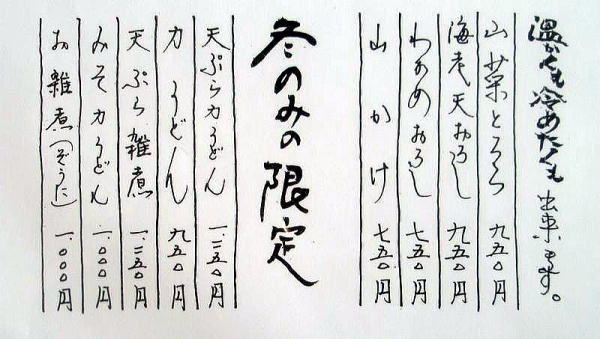 温かくも冷めたくも出来ます。
山菜とろろ 九五〇円
海老天おろし 九五〇円
わかめおろし 七五〇円
山かけ 七五〇円
冬のみの限定
天ぷら力うどん 一、三五〇円
力うどん 九五〇円
天ぷら雑煮 一、三五〇円
みそ力うどん 一、〇〇〇円
お雑煮(ぞうに) 一、〇〇〇円